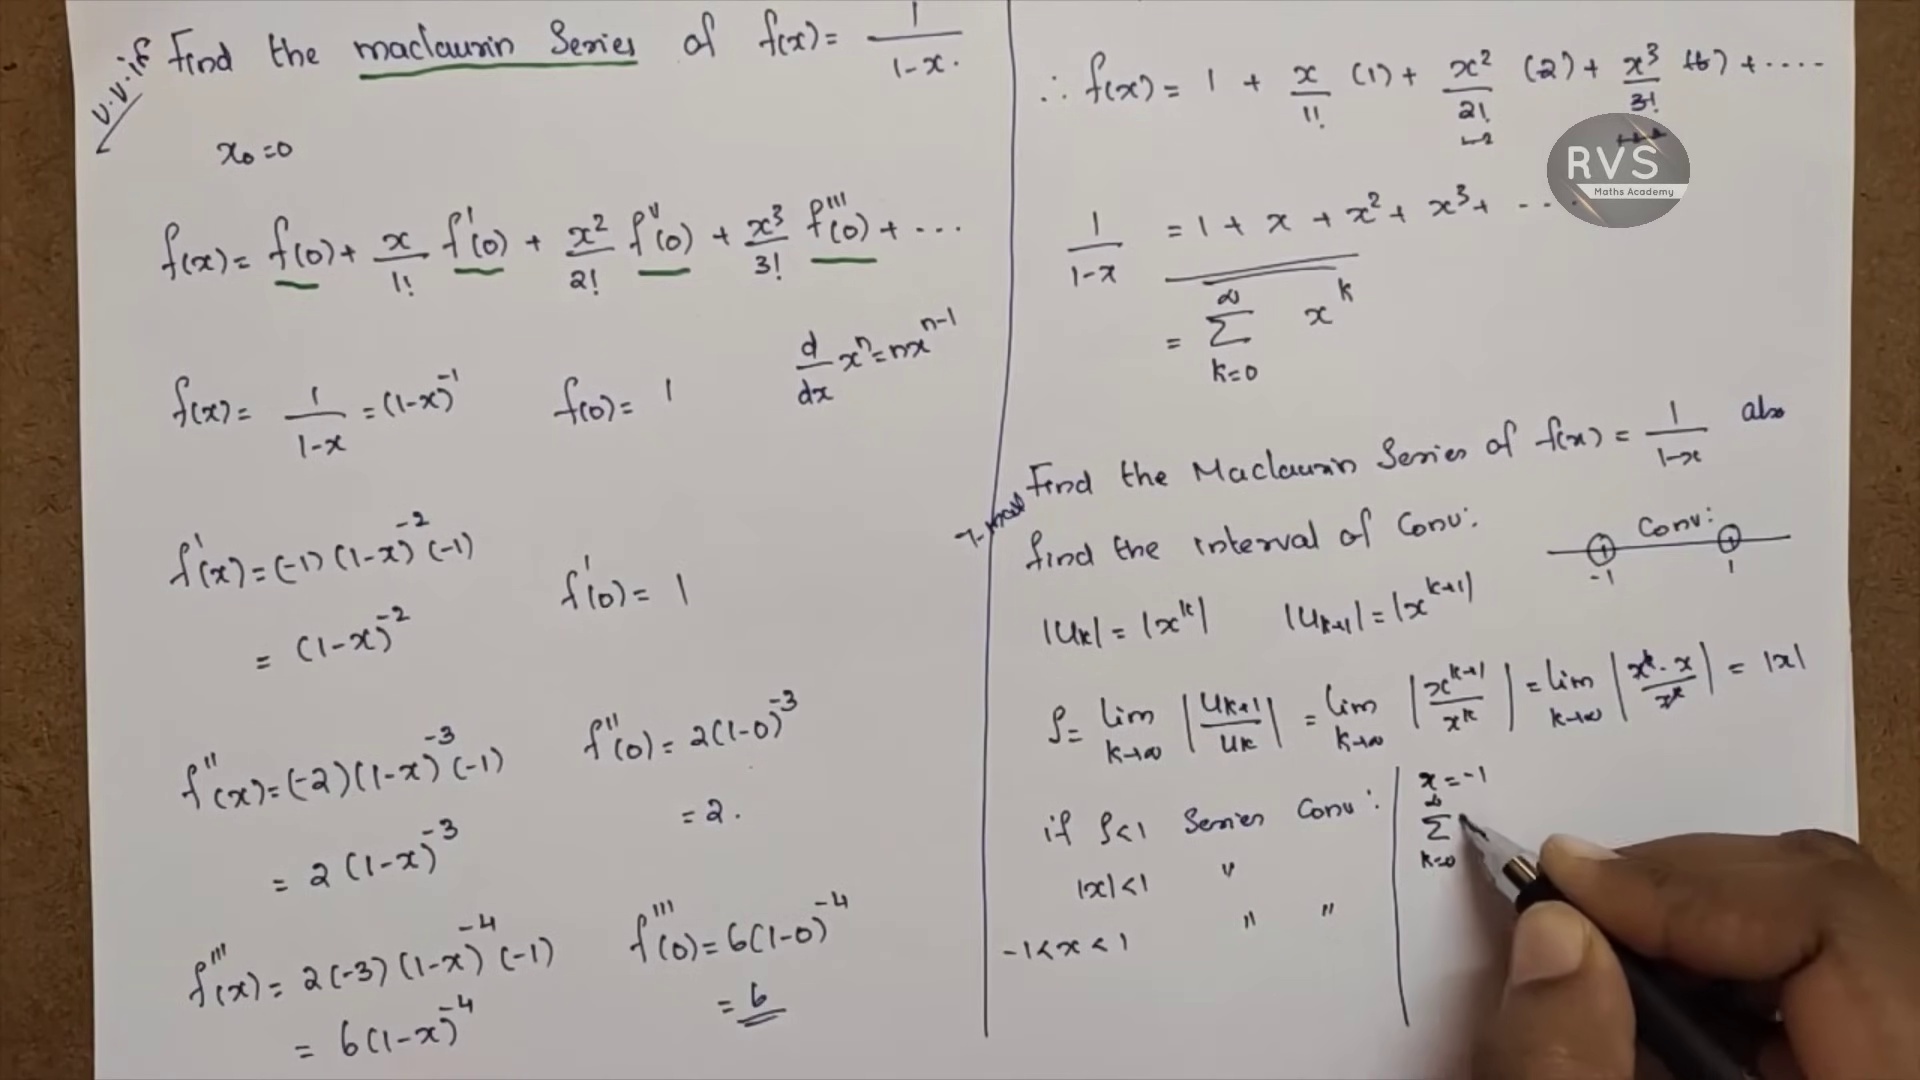 v.v.if
Find the maclaurin Series of f(x) = 1/(1-x).
x₀ = 0
f(x) = f(0) + x/1! f'(0) + x²/2! f''(0) + x³/3! f'''(0) + ...
d/dx xⁿ = nxⁿ⁻¹
f(x) = 1/(1-x) = (1-x)⁻¹ f(0) = 1
f'(x) = (-1)(1-x)⁻²(-1) f'(0) = 1
= (1-x)⁻²
f''(x) = (-2)(1-x)⁻³(-1) f''(0) = 2(1-0)⁻³
= 2(1-x)⁻³ = 2.
f'''(x) = 2(-3)(1-x)⁻⁴(-1) f'''(0) = 6(1-0)⁻⁴
= 6(1-x)⁻⁴ = 6
∴ f(x) = 1 + x/1! (1) + x²/2! (2) + x³/3! (6) + ....
RVS
Maths Academy
1/(1-x) = 1 + x + x² + x³ + ....
= ∑_{k=0}^{∞} x^k
Find the Maclaurin Series of f(x) = 1/(1-x) also
find the interval of Conv:
Conv:
-1 1
|U_k| = |x^k| |U_{k+1}| = |x^{k+1}|
ρ = lim_{k→∞} |U_{k+1}/U_k| = lim_{k→∞} |x^{k+1}/x^k| = lim_{k→∞} |x^k·x/x^k| = |x|
if ρ<1 Series Conv:
|x|<1 "
-1<x<1 " "
x = -1
∑_{k=0}^{∞}